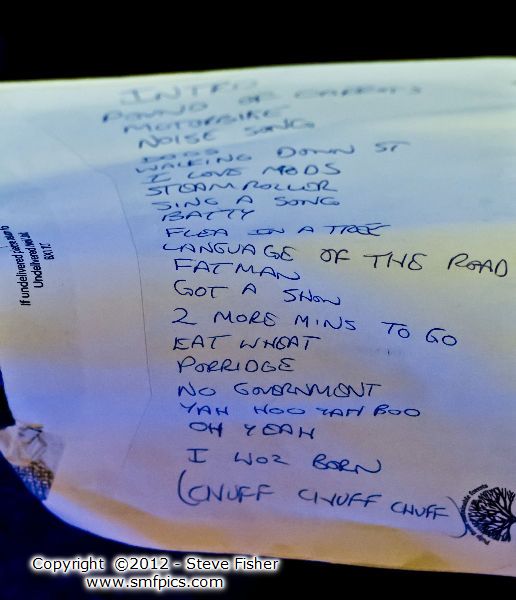 INTRO
POUND OF CARROTS
MOTORBIKE
NOISE SONG
DOGS
WALKING DOWN ST
I LOVE MODS
STEAMROLLER
SING A SONG
BATTY
FLEA IN A TREE
LANGUAGE OF THE ROAD
FATMAN
GOT A SHOW
2 MORE MINS TO GO
EAT WHEAT
PORRIDGE
NO GOVERNMENT
YAH HOO YAH BOO
OH YEAH
I WOZ BORN
(CHUFF CHUFF CHUFF)
If undelivered please return to
Undelivered mail
Copyright ©2012 - Steve Fisher
www.smfpics.com